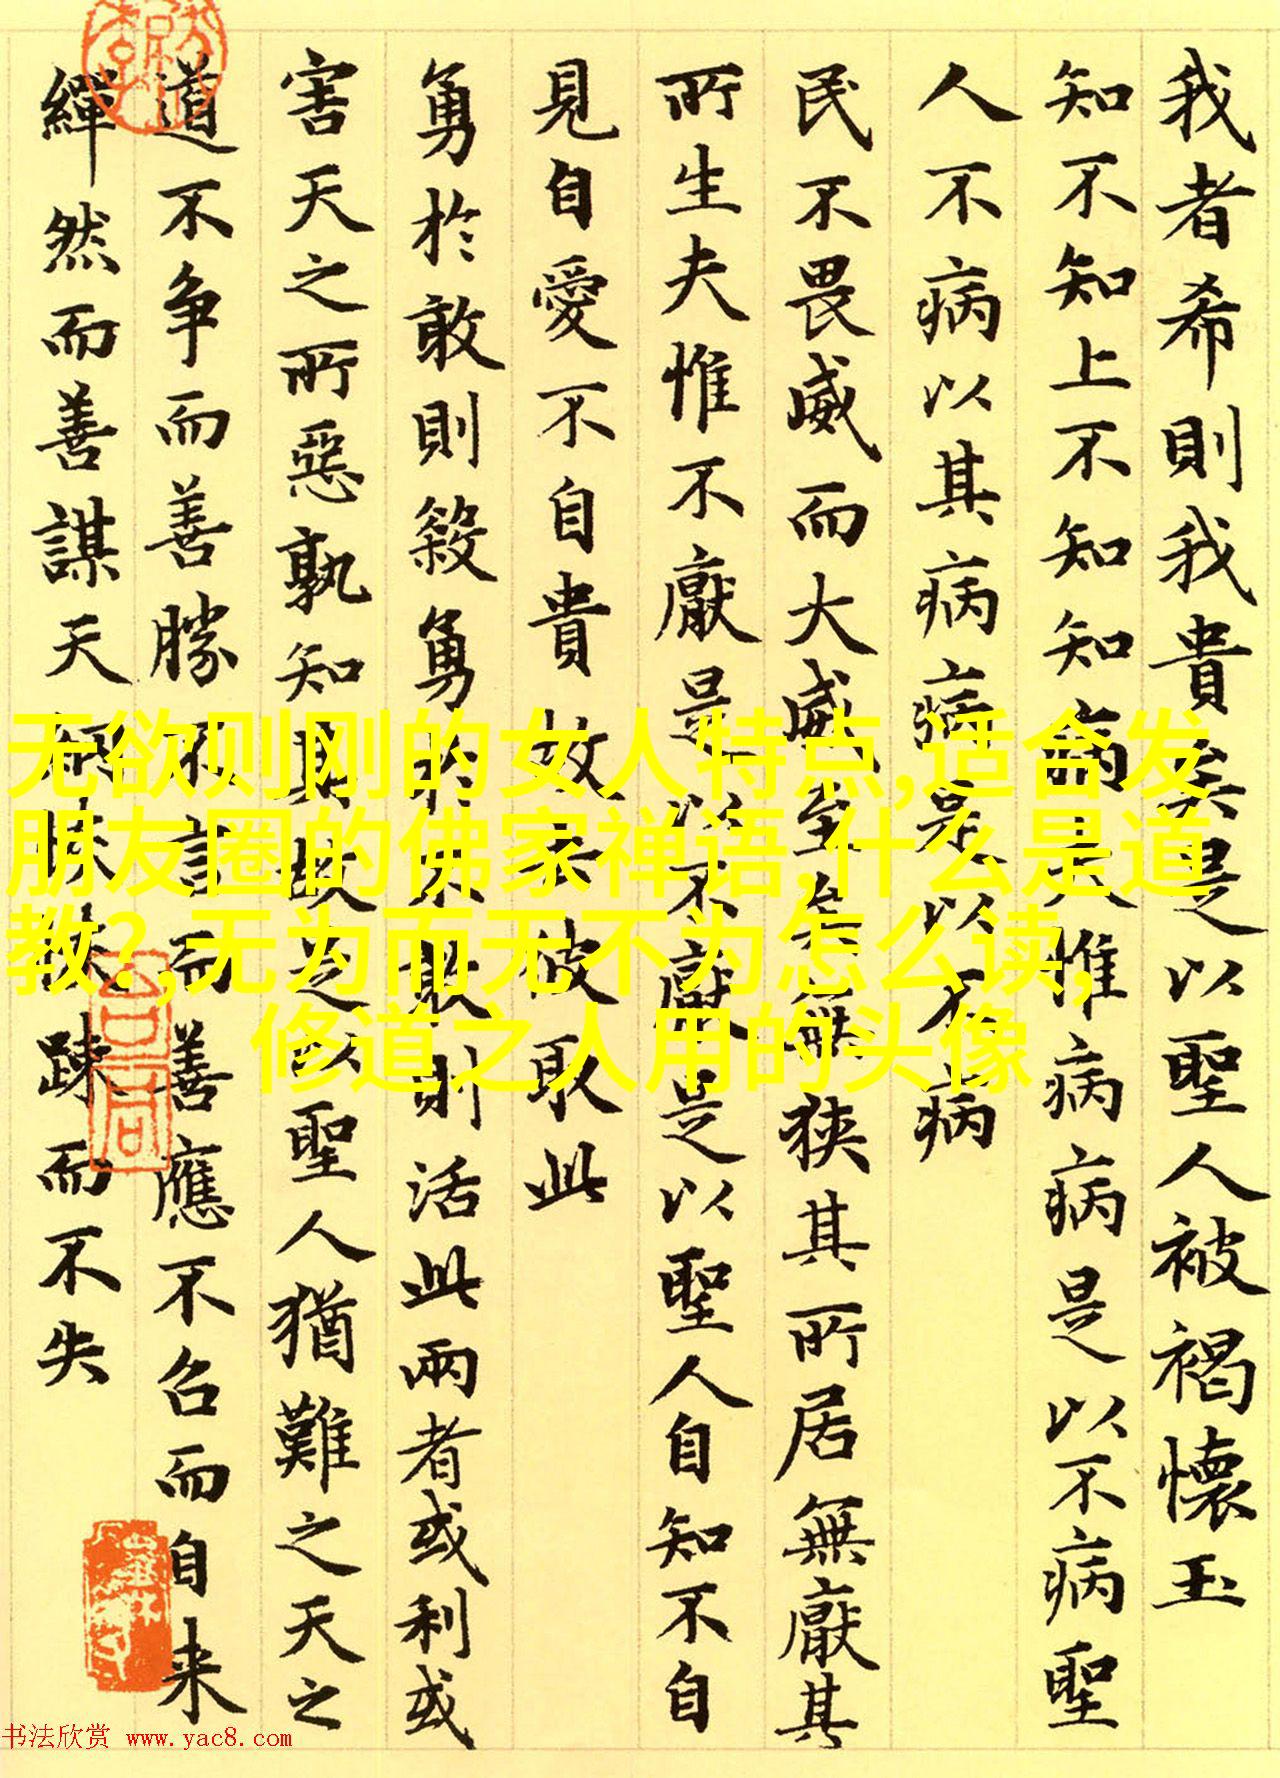 我者希則我貴矣是以聖人被褐懷玉
知不知上不知知病夫惟病病是以不病聖
人不病以其病病是以不病
民不畏威而大威至矣無狹其所居無厭其
所生夫惟不厭是以不厭是以聖人自知不自
見自愛不自貴故去彼取此
勇於敢則殺勇於不敢則活此兩者或利或
害天之所惡孰知其故是以聖人猶難之天之
道不争而善勝不言而善應不召而自来
繟然而善謀天網恢恢踈而不失
无欲则刚的女人特点,适合发
朋友圈的佛家禅语,什么是道
教?,无为而无不为怎么读,
修道之人用的头像
书法欣赏 www.yac8.com